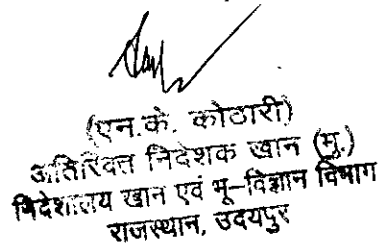 (एन.के. कोठारी)
अतिरिक्त निदेशक खान (मु.)
निदेशालय खान एवं भू-विज्ञान विभाग
राजस्थान, उदयपुर